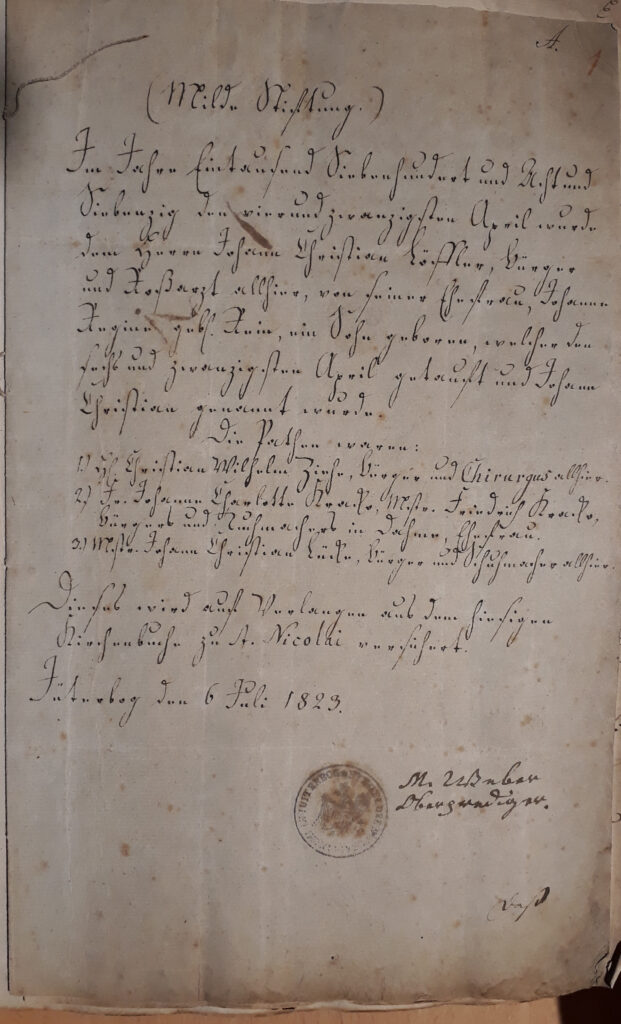 A.
1
(Milde Stiftung.)
Im Jahre Eintausend Siebenhundert und Acht und
Siebenzig den vier und zwanzigsten April wurde
dem Herrn Johann Christian Löffler, Bürger
und Roßarzt allhier, von seiner Ehefrau, Johanne
Regine, geb. Rein, ein Sohn geboren, welcher den
sechs und zwanzigsten April getauft und Johann
Christian genannt wurde.
Die Pathen waren:
1) H. Christian Wilhelm Ziehe, Bürger und Chirurgus allhier.
2) Fr. Johanne Charlotte Mstr. Friedrich
Bürgers und in Dahme, Ehefrau.
3) Mstr. Johann Christian Lücke, Bürger und Schuhmacher allhier.
Dieses wird auf Verlangen aus dem hiesigen
Kirchenbuche zu St. Nicolai versichert.
Jüterbog den 6 Juli 1823.
M. Weber
Oberprediger.